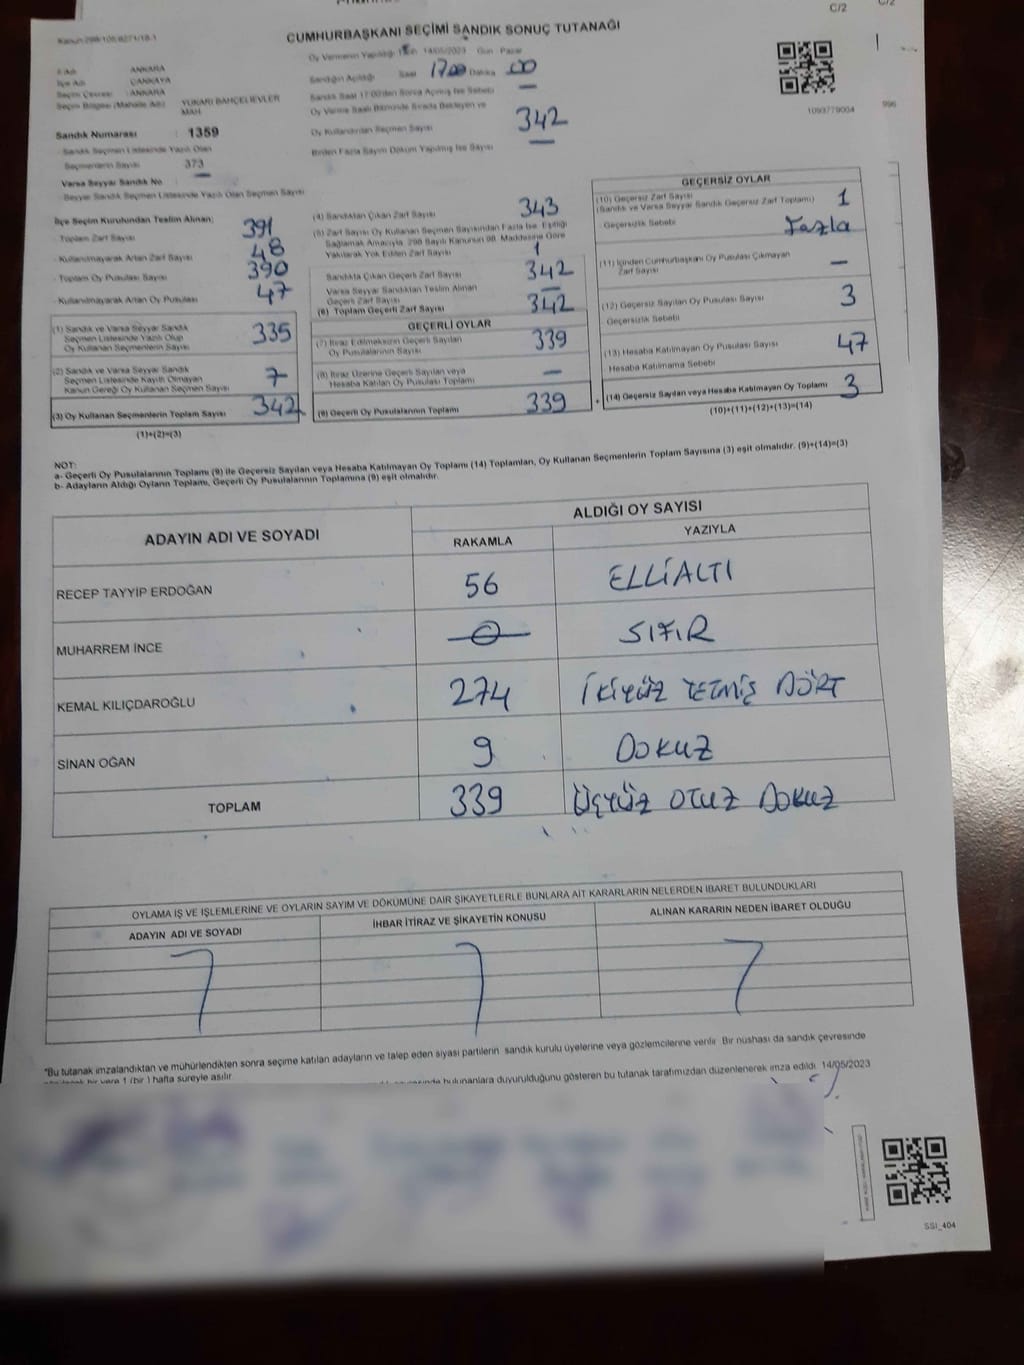 C/2
C/2
CUMHURBAŞKANI SEÇİMİ SANDIK SONUÇ TUTANAĞI
Oy Vermenin Yapıldığı 14/05/2023 Gün Pazar
İl Adı : ANKARA
İlçe Adı : ÇANKAYA
Seçim Çevresi : ANKARA
Seçim Bölgesi (Mahalle Adı) : YUKARI BAHÇELİEVLER MAH
Sandık Numarası : 1359
Sandık Seçmen Listesinde Yazılı Olan
Seçmenlerin Sayısı 373
Varsa Seyyar Sandık No —
Seyyar Sandık Seçmen Listesinde Yazılı Olan Seçmen Sayısı
Sandığın Açıldığı Saat 1700 Dakika 00
Oy Kullandırılan Seçmen Sayısı 342
Birden Fazla Sayım Döküm Yapılmış İse Sayısı —
1093779004
996
İlçe Seçim Kurulundan Teslim Alınan;
Toplam Zarf Sayısı 391
Kullanılmayarak Artan Zarf Sayısı 48
Toplam Oy Pusulası Sayısı 390
Kullanılmayarak Artan Oy Pusulası 47
(1) Sandık ve Varsa Seyyar Sandık
Seçmen Listesinde Yazılı Olup
Oy Kullanan Seçmenlerin Sayısı 335
(2) Sandık ve Varsa Seyyar Sandık
Seçmen Listesinde Kayıtlı Olmayan
Kanun Gereği Oy Kullanan Seçmen Sayısı 7
(3) Oy Kullanan Seçmenlerin Toplam Sayısı 342
(1)+(2)=(3)
(4) Sandıktan Çıkan Zarf Sayısı 343
(5) Zarf Sayısı Oy Kullanan Seçmen Sayısından Fazla İse, Eşitliği
Sağlamak Amacıyla, 298 Sayılı Kanunun 98. Maddesine Göre
Yakılarak Yok Edilen Zarf Sayısı 1
Sandıkta Çıkan Geçerli Zarf Sayısı 342
Varsa Seyyar Sandıktan Teslim Alınan
Geçerli Zarf Sayısı —
(6) Toplam Geçerli Zarf Sayısı 342
GEÇERLİ OYLAR
(7) İtiraz Edilmeksizin Geçerli Sayılan
Oy Pusulalarının Sayısı 339
(8) İtiraz Üzerine Geçerli Sayılan veya
Hesaba Katılan Oy Pusulası Toplamı —
(9) Geçerli Oy Pusulalarının Toplamı 339
GEÇERSİZ OYLAR
(10) Geçersiz Zarf Sayısı
(Sandık ve Varsa Seyyar Sandık Geçersiz Zarf Toplamı) 1
Geçersizlik Sebebi Fazla
(11) İçinden Cumhurbaşkanı Oy Pusulası Çıkmayan
Zarf Sayısı —
(12) Geçersiz Sayılan Oy Pusulası Sayısı 3
Geçersizlik Sebebi
(13) Hesaba Katılmayan Oy Pusulası Sayısı 47
Hesaba Katılmama Sebebi
+ (14) Geçersiz Sayılan veya Hesaba Katılmayan Oy Toplamı 3
(10)+(11)+(12)+(13)=(14)
NOT:
a- Geçerli Oy Pusulalarının Toplamı (9) ile Geçersiz Sayılan veya Hesaba Katılmayan Oy Toplamı (14) Toplamları, Oy Kullanan Seçmenlerin Toplam Sayısına (3) eşit olmalıdır. (9)+(14)=(3)
b- Adayların Aldığı Oyların Toplamı, Geçerli Oy Pusulalarının Toplamına (9) eşit olmalıdır.
ADAYIN ADI VE SOYADI
ALDIĞI OY SAYISI
RAKAMLA YAZIYLA
RECEP TAYYİP ERDOĞAN 56 ELLİALTI
MUHARREM İNCE 0 SIFIR
KEMAL KILIÇDAROĞLU 274 İKİYÜZ YETMİŞ DÖRT
SİNAN OĞAN 9 DOKUZ
TOPLAM 339 ÜÇYÜZ OTUZ DOKUZ
OYLAMA İŞ VE İŞLEMLERİNE VE OYLARIN SAYIM VE DÖKÜMÜNE DAİR ŞİKAYETLERLE BUNLARA AİT KARARLARIN NELERDEN İBARET BULUNDUKLARI
ADAYIN ADI VE SOYADI
İHBAR İTİRAZ VE ŞİKAYETİN KONUSU
ALINAN KARARIN NEDEN İBARET OLDUĞU
*Bu tutanak imzalandıktan ve mühürlendikten sonra seçime katılan adayların ve talep eden siyasi partilerin sandık kurulu üyelerine veya gözlemcilerine verilir. Bir nüshası da sandık çevresinde
bir yere 1 (bir) hafta süreyle asılır.
bulunanlara duyurulduğunu gösteren bu tutanak tarafımızdan düzenlenerek imza edildi. 14/05/2023
SSI_404